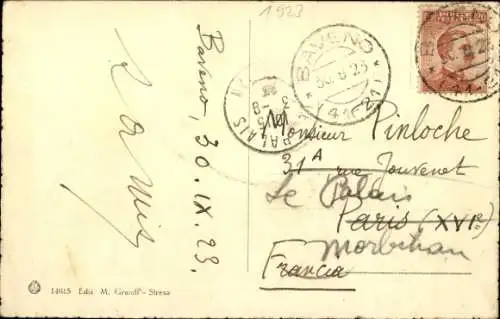 1923
BAVENO
30.8.23
(41-21)
PALAIS
Baveno, 30.IX.23.
Monsieur Pinloche
31A rue Jouvenet
Le Palais
Paris (XVIe)
Morbihan
Francia
14615 Ediz. M. Graroff - Stresa